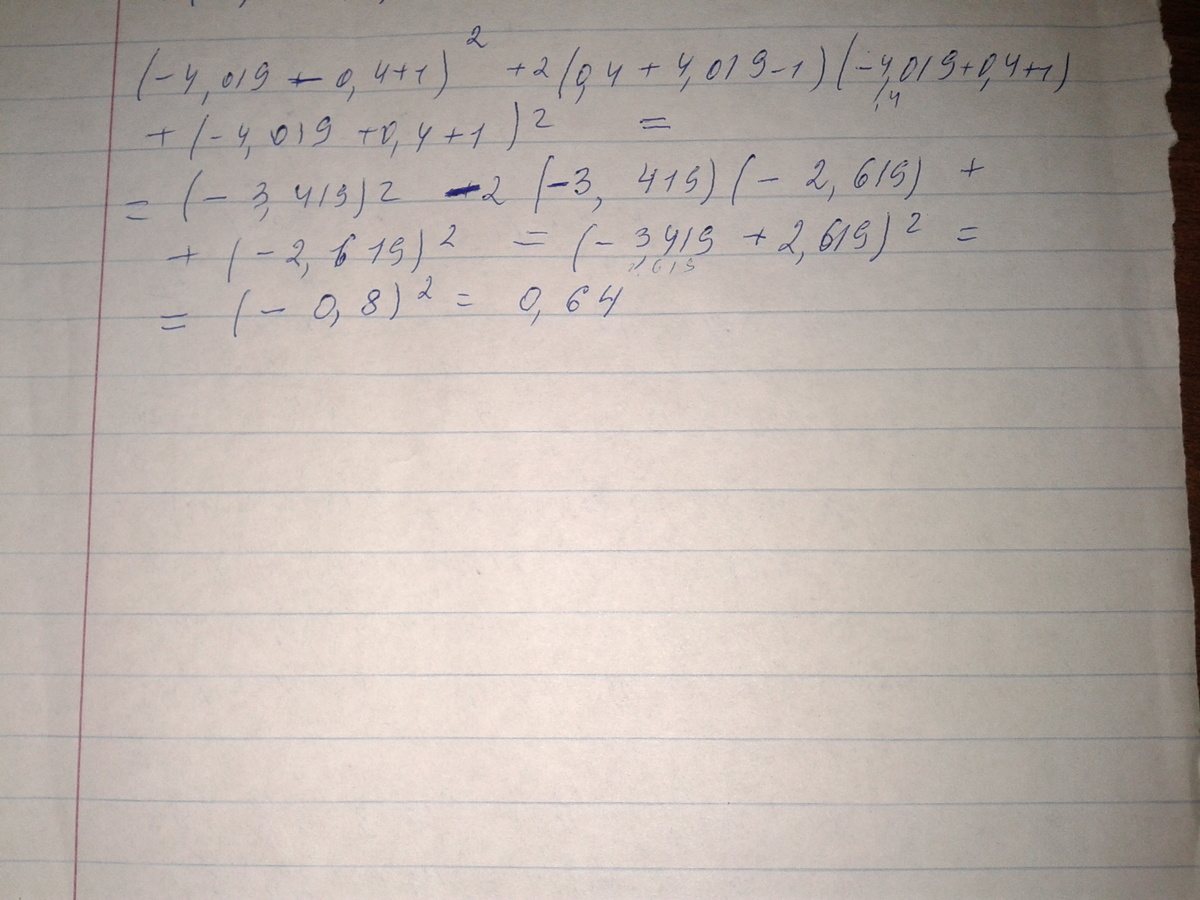 (-4,019 - 0,4+1)² +2(0,4 + 4,019-1)(-4,019+0,4+1)
,4
+ (-4,019 +0,4+1)² =
= (-3,419)² -2 (-3,419)(-2,619) +
+ (-2,619)² = (-3419 + 2,619)² =
= (-0,8)² = 0,64